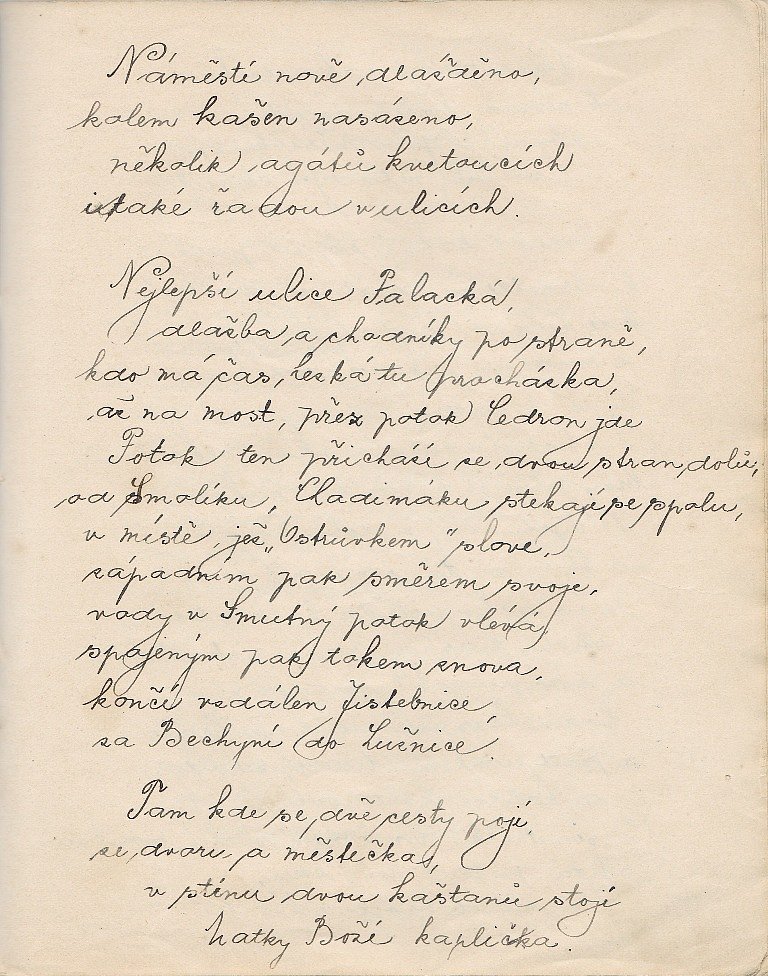 Náměstí nově dlážděno,
kolem kašen nasázeno,
několik agátů kvetoucích
i také řadou v ulicích.
Nejlepší ulice Palacká,
dlažba a chodníky po straně,
kdo má čas, léská tu procházka,
až na most, přez potok Cedron jde
Potok ten přichází se dvou stran dolů,
od Smolíku, Chadimáku stekají se spolu,
v místě, jež „Ostrůvkem" slove,
západním pak směrem svoje,
vody v Smutný potok vlévá,
spojeným pak tokem znova,
končí vzdálen Jistebnice,
za Bechyní do Lužnice.
Tam kde se dvě cesty pojí,
ze dvoru a městečka,
v stínu dvou kaštanů stojí
Matky Boží kaplička.